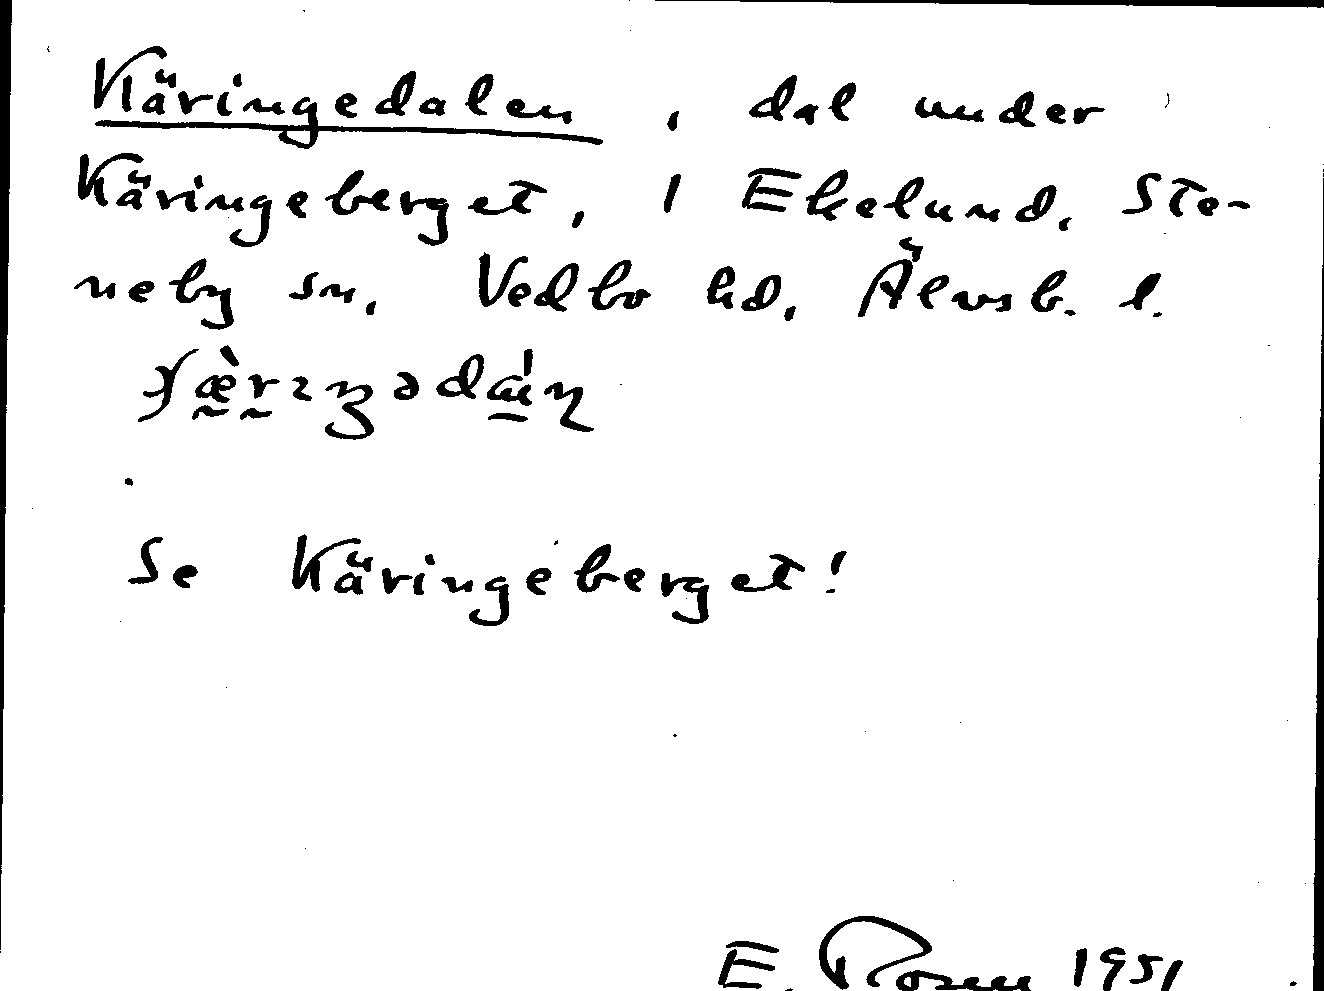 Käringedalen, dal under
Käringeberget, 1 Ekelund, Ste-
neby sn, Vedbo hd, Älvsb. l.
Se Käringeberget!
E. Rosen 1951